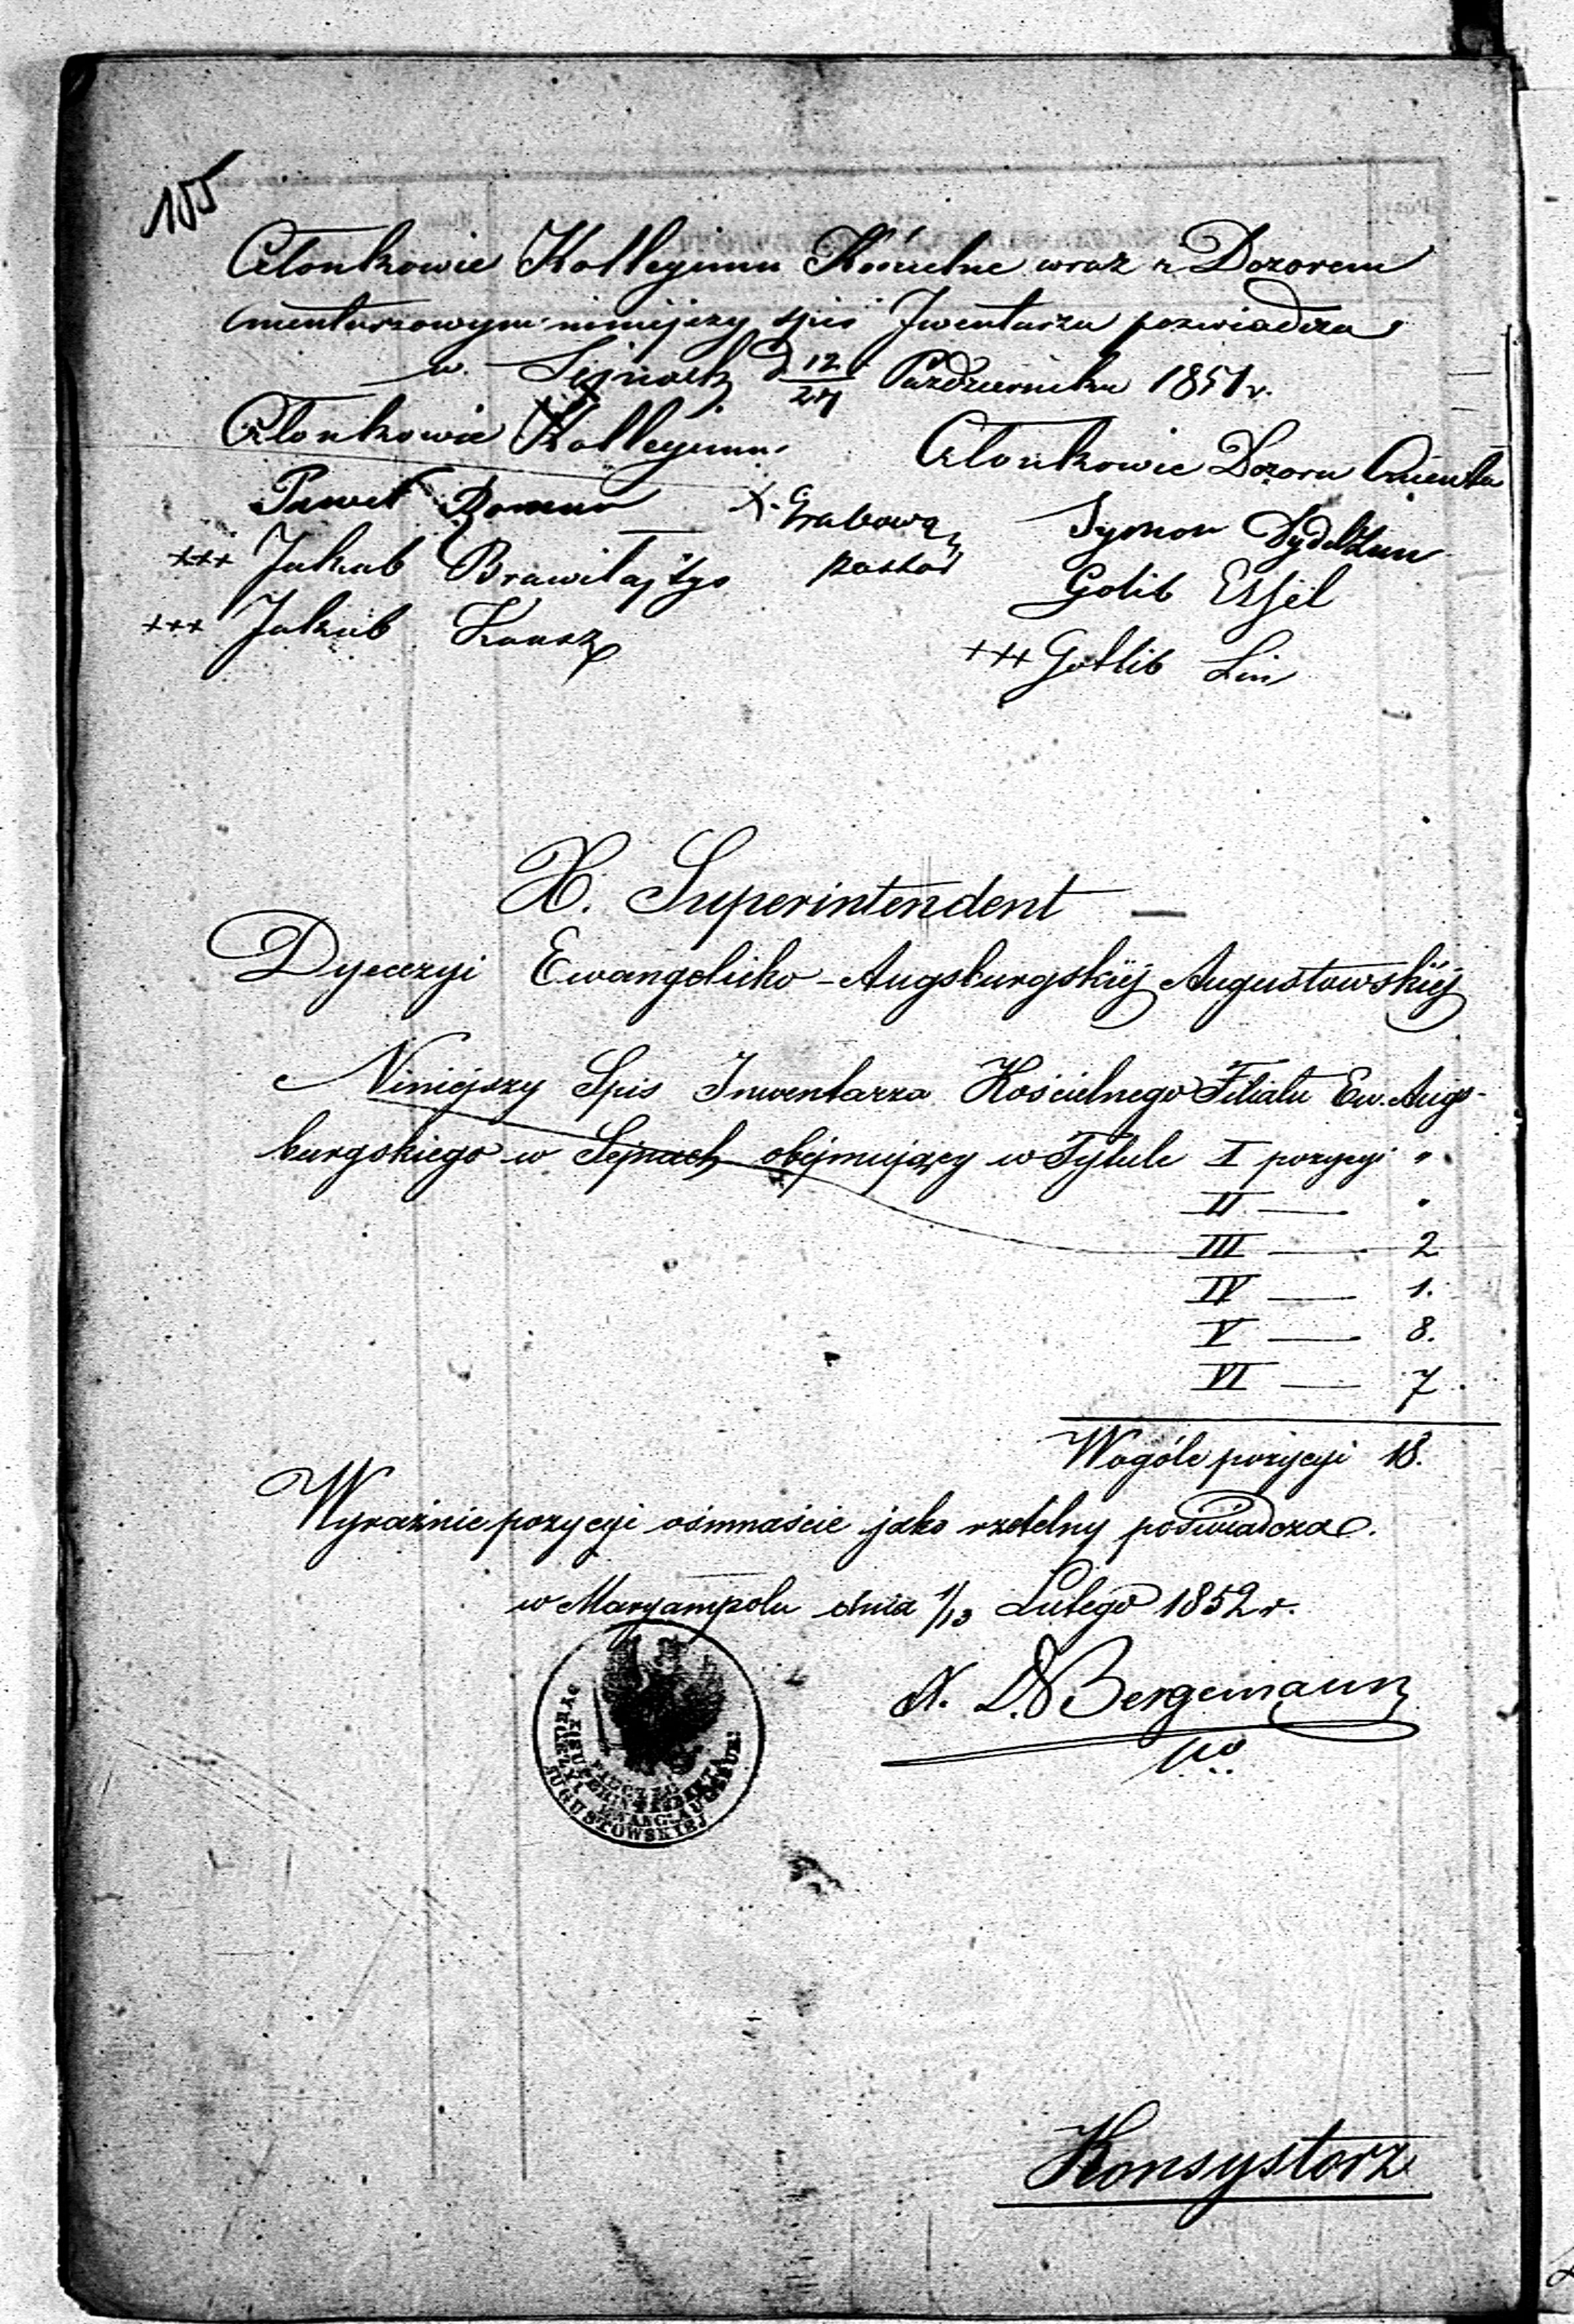 105
Członkowie Kollegium Kościelne wraz z Dozorem
Cmentarzowym niniejszy spis Inwentarza poswiadcza
w. Sejnach d 12/24 Października 1851 r.
Członkowie Kollegium. Członkowie Dozoru Cmenta
Paweł X. Grabowę Symon
+++ Jakub pastor Golib Essel
+++ Jakub +++ Gotlib Lin
X. Superintendent —
Dyecezyi Ewangelicko-Augsburgskiéj Augustowskiéj
Niniejszy Spis Inwentarza Kościelnego Filiału Ew. Augs-
burgskiego w Sejnach obejmujący w Tytule I pozycyi "
II — "
III — 2
IV — 1.
V — 8.
VI — 7.
Wogóle pozycyi 18.
Wyraźnie pozycyi ośmnaście jako rzetelny poświadcza.
w Maryampolu dnia 1/13 Lutego 1852 r.
X. Bergemann
AUGUSTOWSKIEJ
Konsystorz